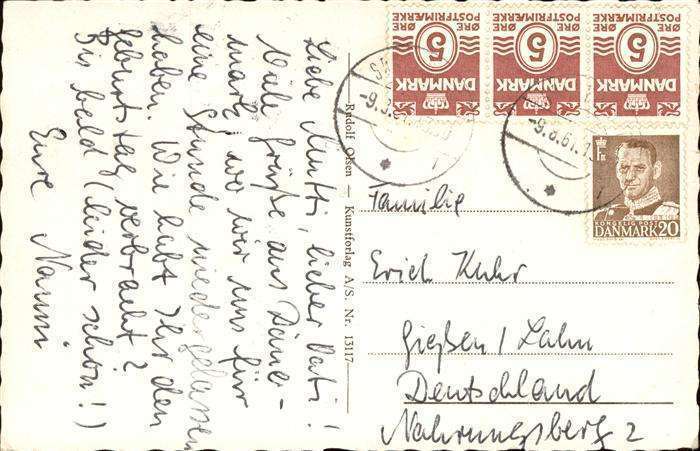 Liebe Mutti, lieber Vati!
Viele Grüße aus Däne-
mark, wo wir uns für
eine Stunde niedergelassen
haben. Wie habt Ihr den
Geburtstag verbracht?
Bis bald (leider schon!)
Eure Nanni
Rudolf Olsen — Kunstforlag A/S. Nr. 13117
POSTFRIMÆRKE
ØRE 5 ØRE
DANMARK
POSTFRIMÆRKE
ØRE 5 ØRE
DANMARK
POSTFRIMÆRKE
ØRE 5 ØRE
DANMARK
-9.8.61.
KONGELIG POST
DANMARK 20
Familie
Erich Kuhr
Gießen / Lahn
Deutschland
Nahrungsberg 2